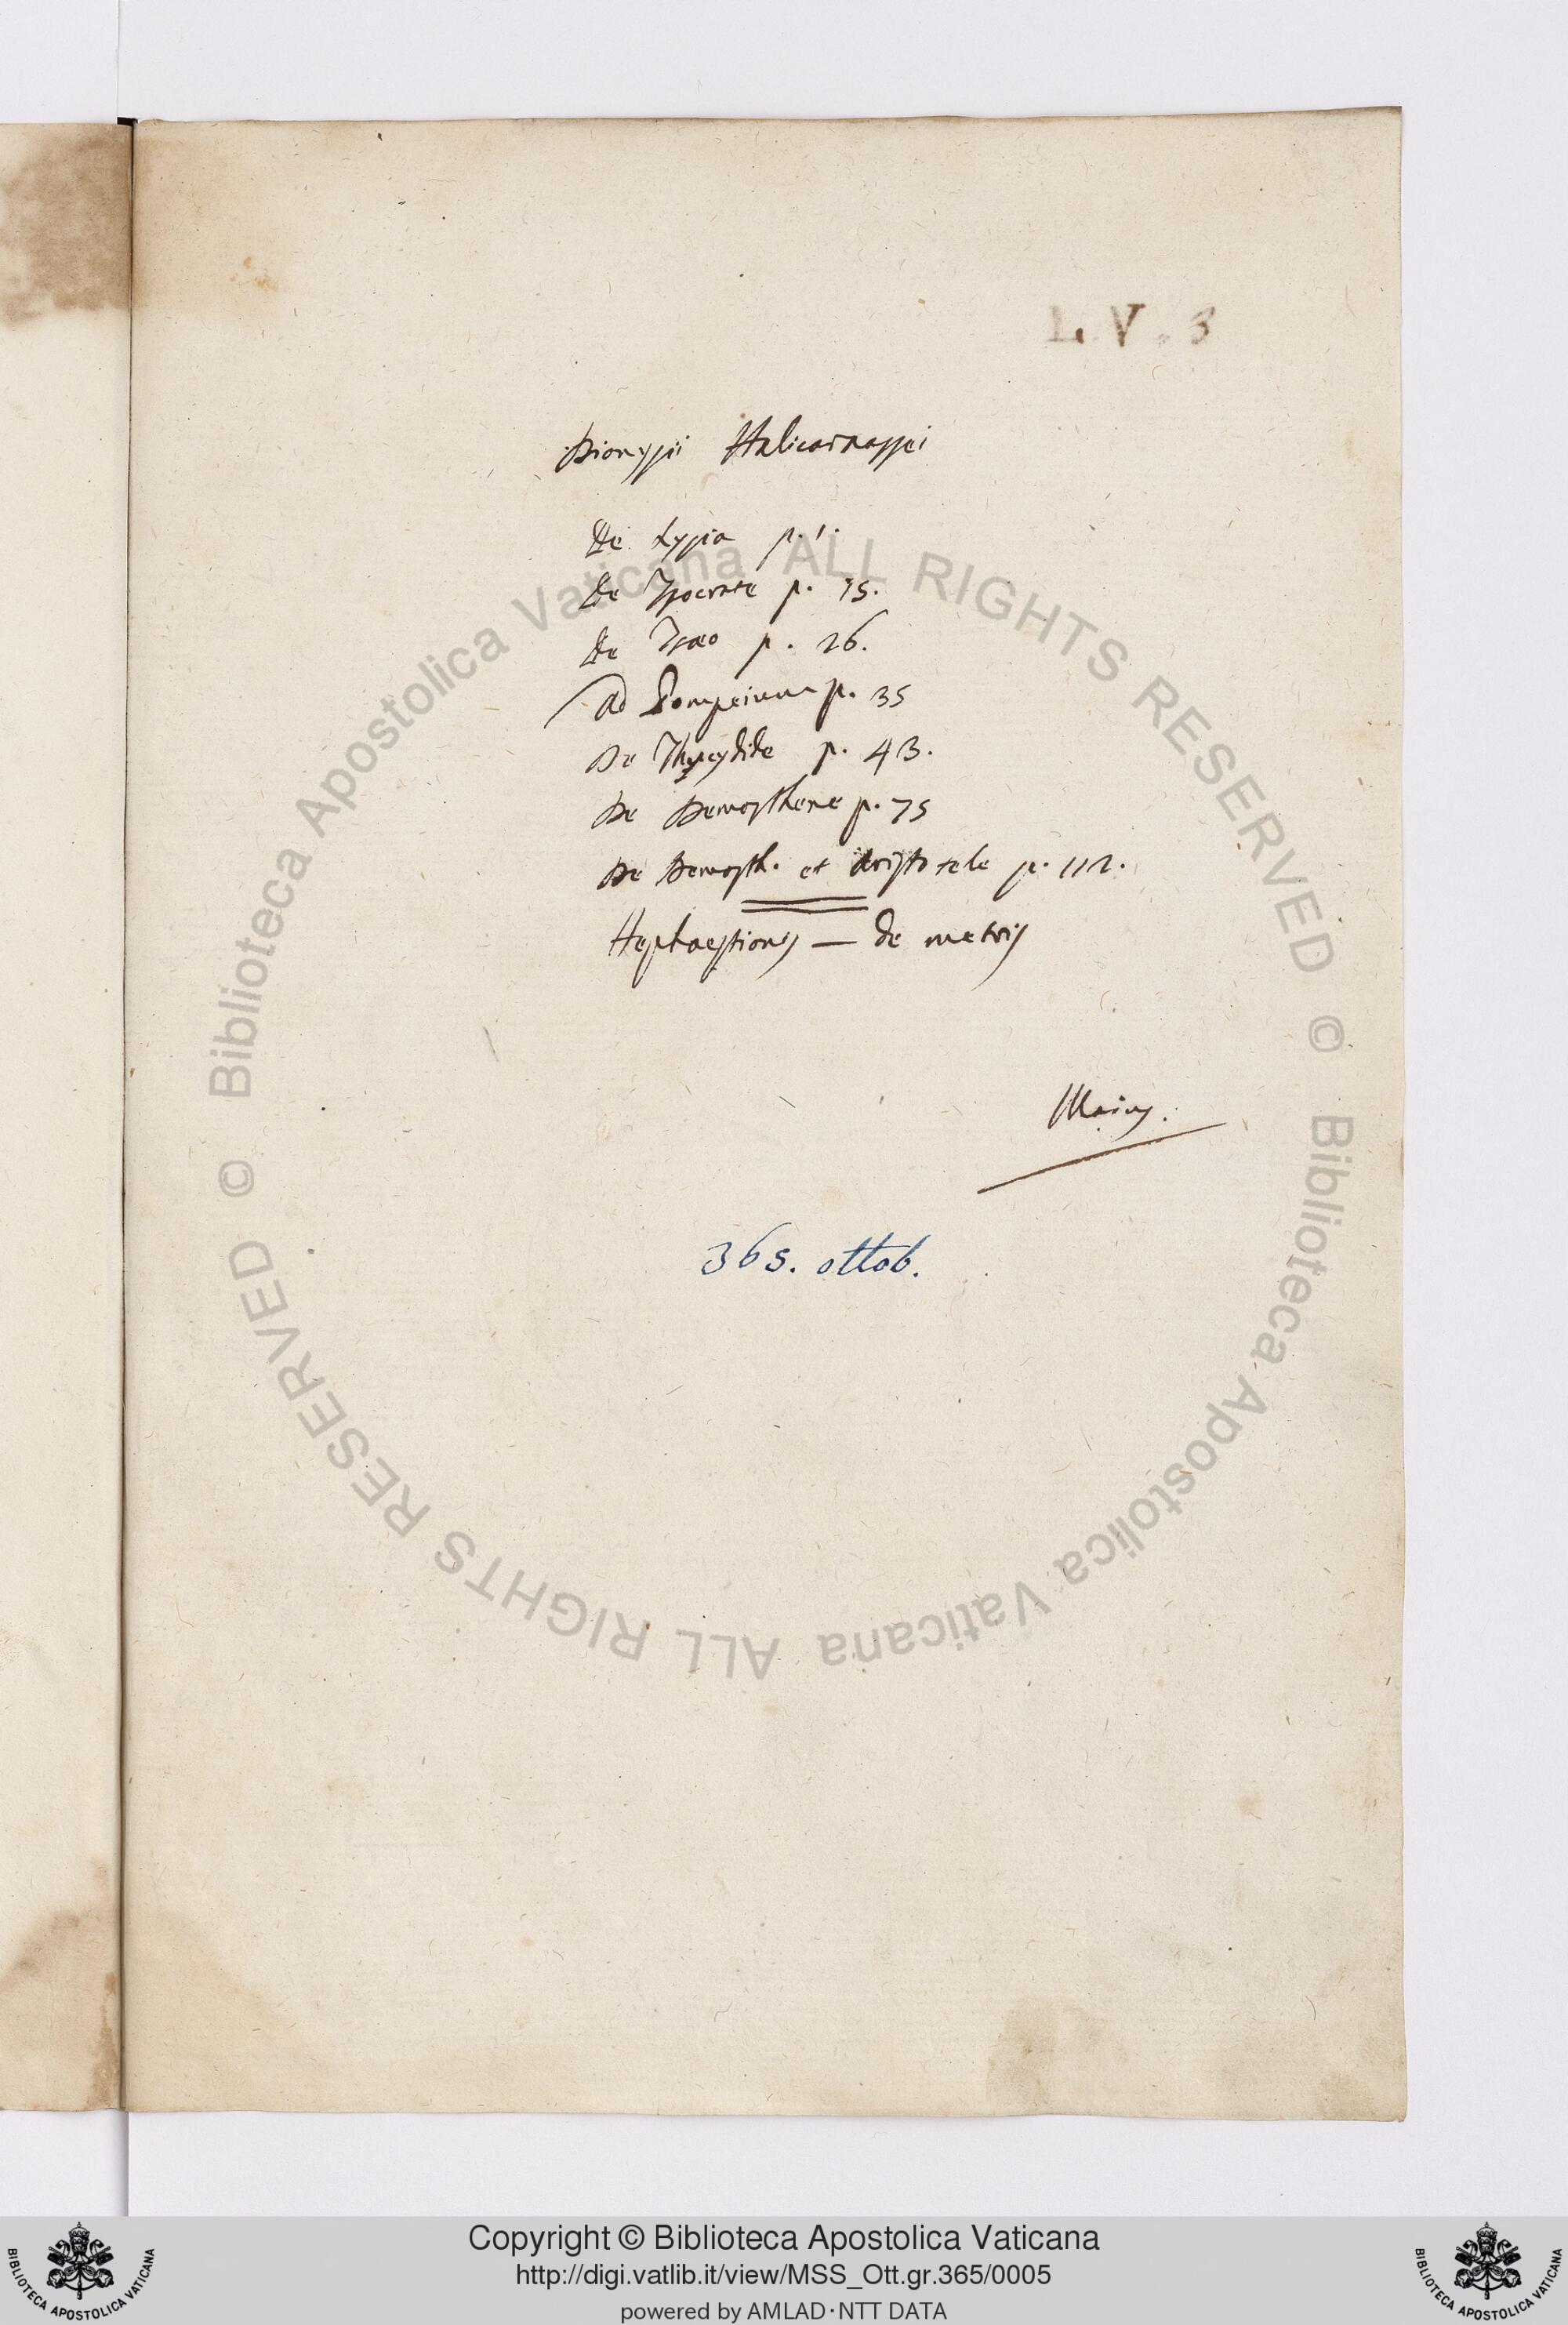 L. V. 3
Dionysii Halicarnassei
De Lysia p. 1.
De Isocrate p. 15.
De Isaeo p. 26.
Ad Pompeium p. 35
De Thucydide p. 43.
De Demosthene p. 75
De Demosth. et Aristotele p. 112.
Hephaestionis — de metris
Maius.
365. ottob.
© Biblioteca Apostolica Vaticana ALL RIGHTS RESERVED © Biblioteca Apostolica Vaticana ALL RIGHTS RESERVED
Copyright © Biblioteca Apostolica Vaticana
http://digi.vatlib.it/view/MSS_Ott.gr.365/0005
powered by AMLAD·NTT DATA
BIBLIOTECA APOSTOLICA VATICANA
BIBLIOTECA APOSTOLICA VATICANA